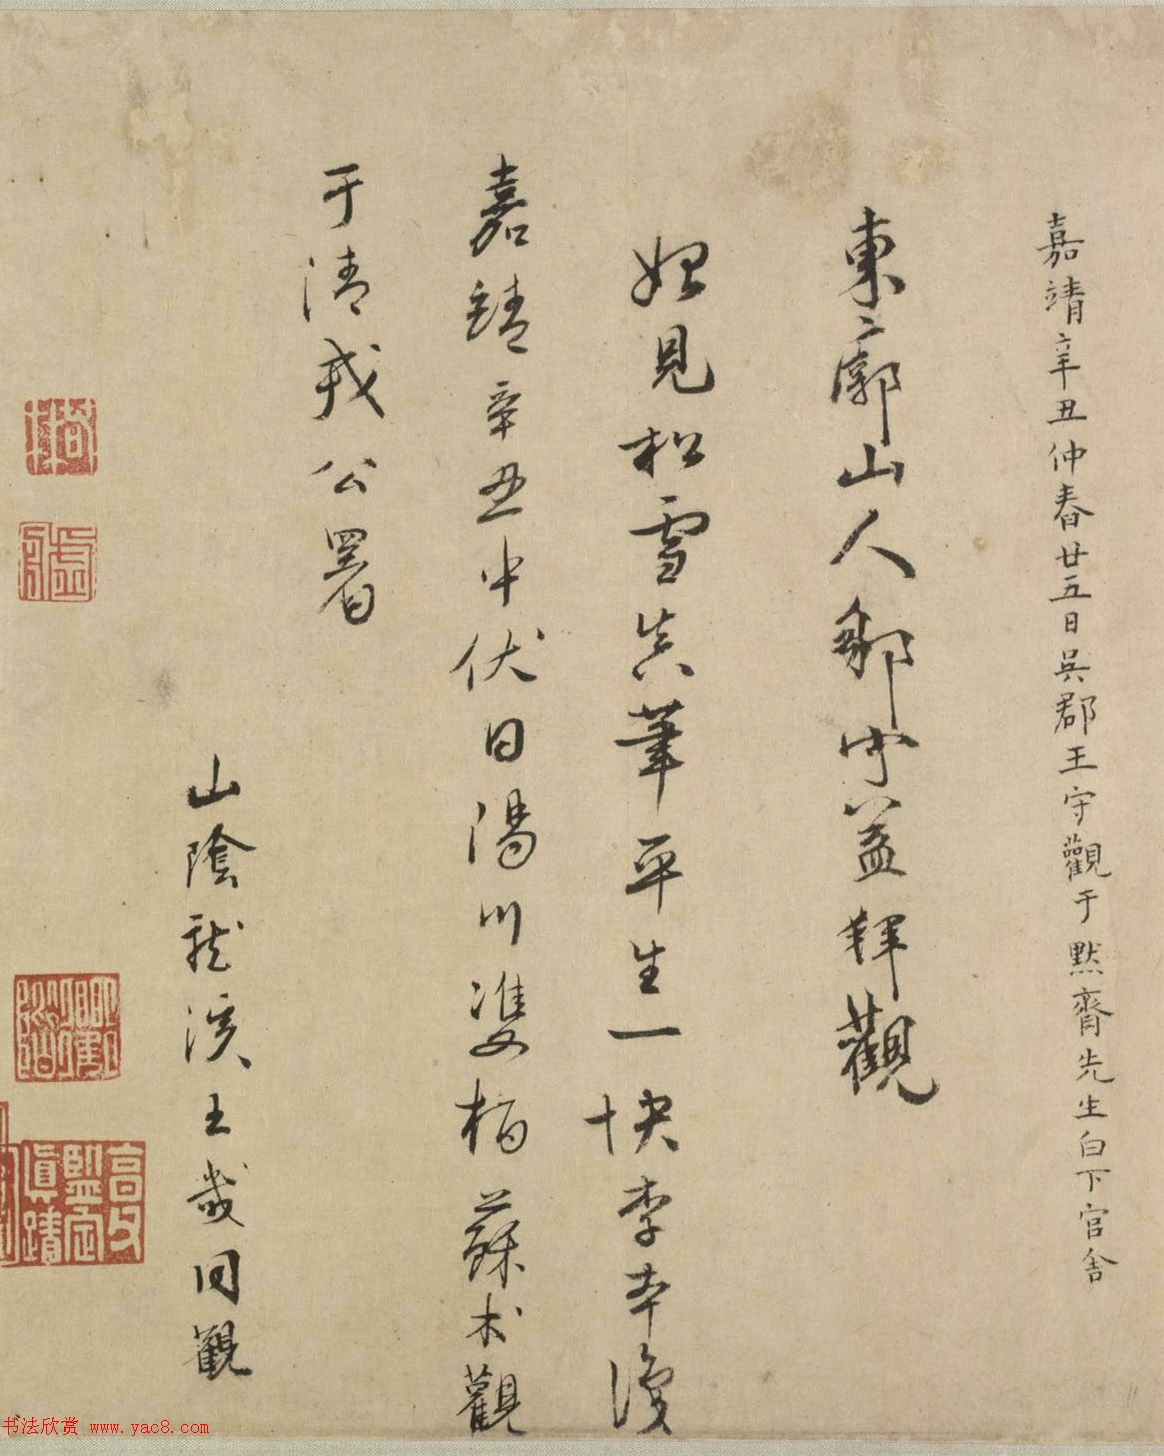 嘉靖辛丑仲春廿五日吳郡王守觀于默齋先生白下官舍
東廓山人鄒守益拜觀
始見松雪真筆平生一快李本獲
嘉靖辛丑中伏日陽川雙栢蘇术觀
于清戎公署
山陰龍溪王畿同觀
高氏鑒定真蹟
书法欣赏 www.yac8.com